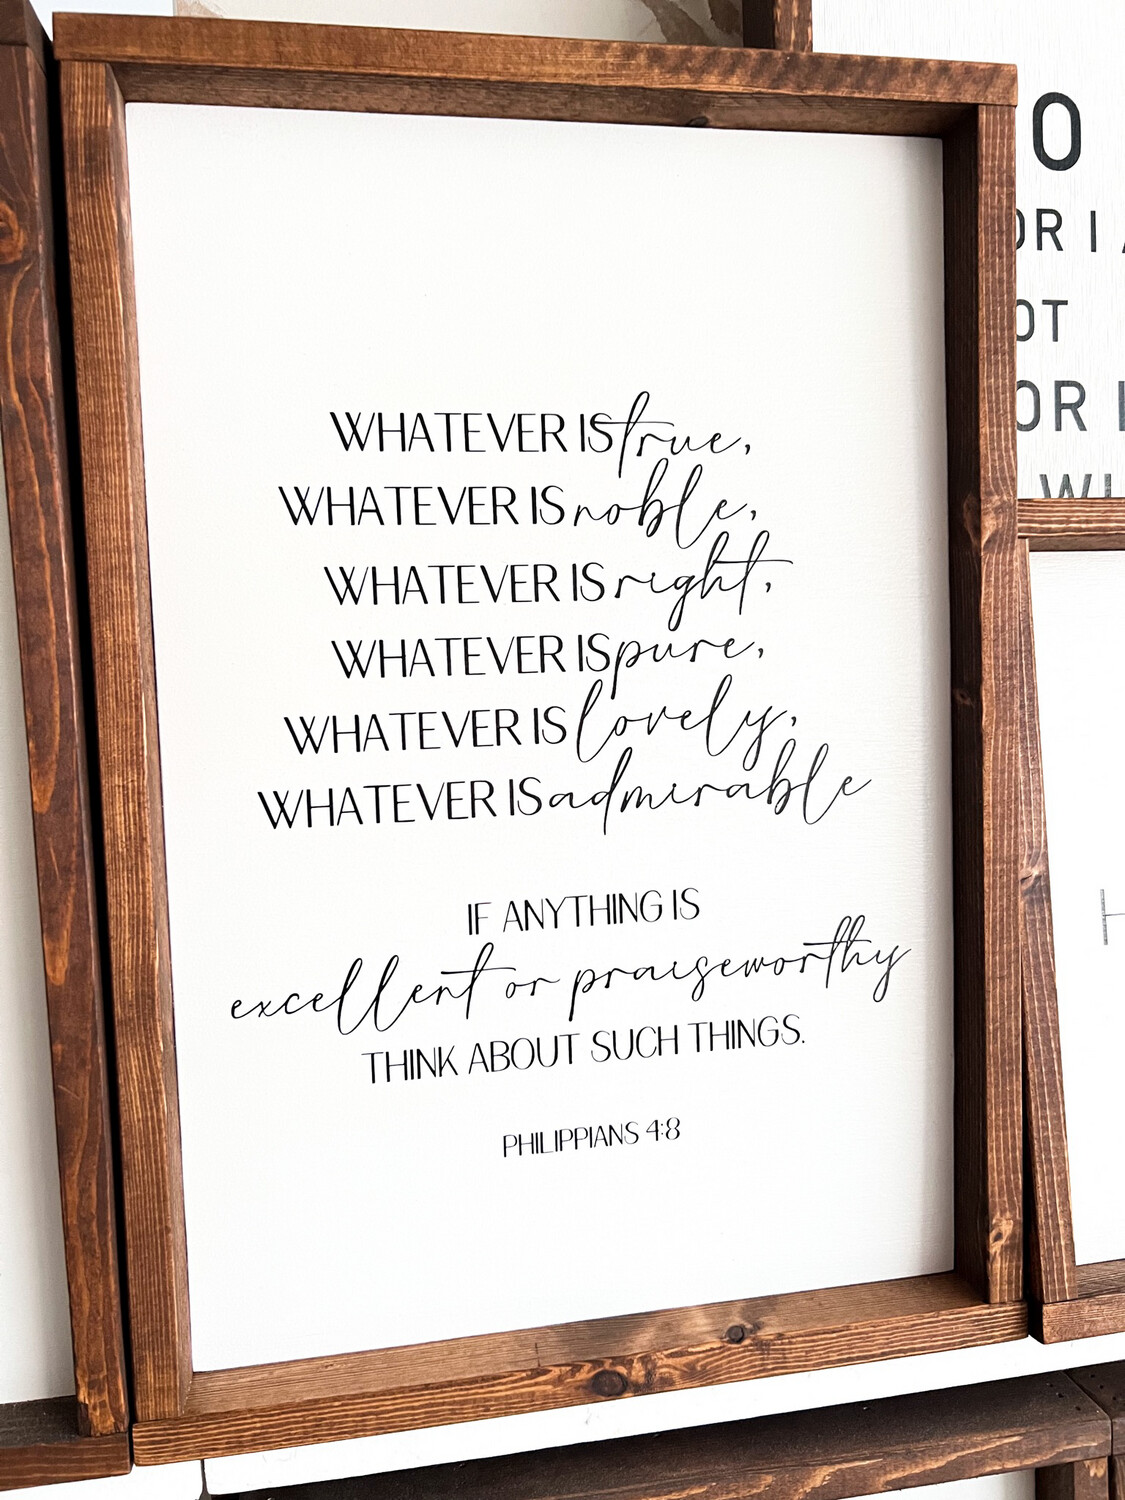 WHATEVER IS true,
WHATEVER IS noble,
WHATEVER IS right,
WHATEVER IS pure,
WHATEVER IS lovely,
WHATEVER IS admirable
IF ANYTHING IS
excellent or praiseworthy
THINK ABOUT SUCH THINGS.
PHILIPPIANS 4:8
O
OR I
OT
OR I